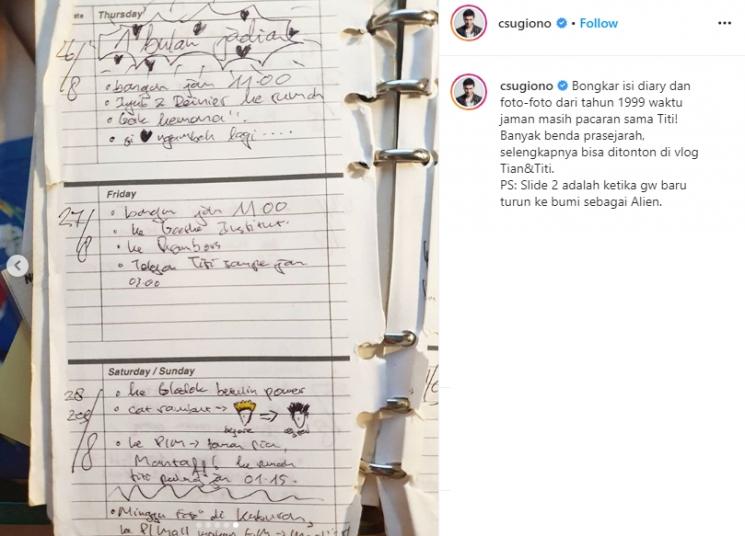 Thursday
26/8
1 bulan jadian
• bangun jam 11.00
• ke rumah
• Gak kemana".
• si ♥ ngambek lagi ....
Friday
27/8
• bangun jam 11.00
• ke Goethe Institut.
• ke Prambors
• Telepon Titi sampe jam
03.00
Saturday / Sunday
28
8
• ke Glodok betulin power
• cat rambut →
before
• ke PIM →
Mantaff! ke rumah
titi jam 01.15.
• Minggu di
csugiono • Follow
csugiono Bongkar isi diary dan
foto-foto dari tahun 1999 waktu
jaman masih pacaran sama Titi!
Banyak benda prasejarah,
selengkapnya bisa ditonton di vlog
Tian&Titi.
PS: Slide 2 adalah ketika gw baru
turun ke bumi sebagai Alien.